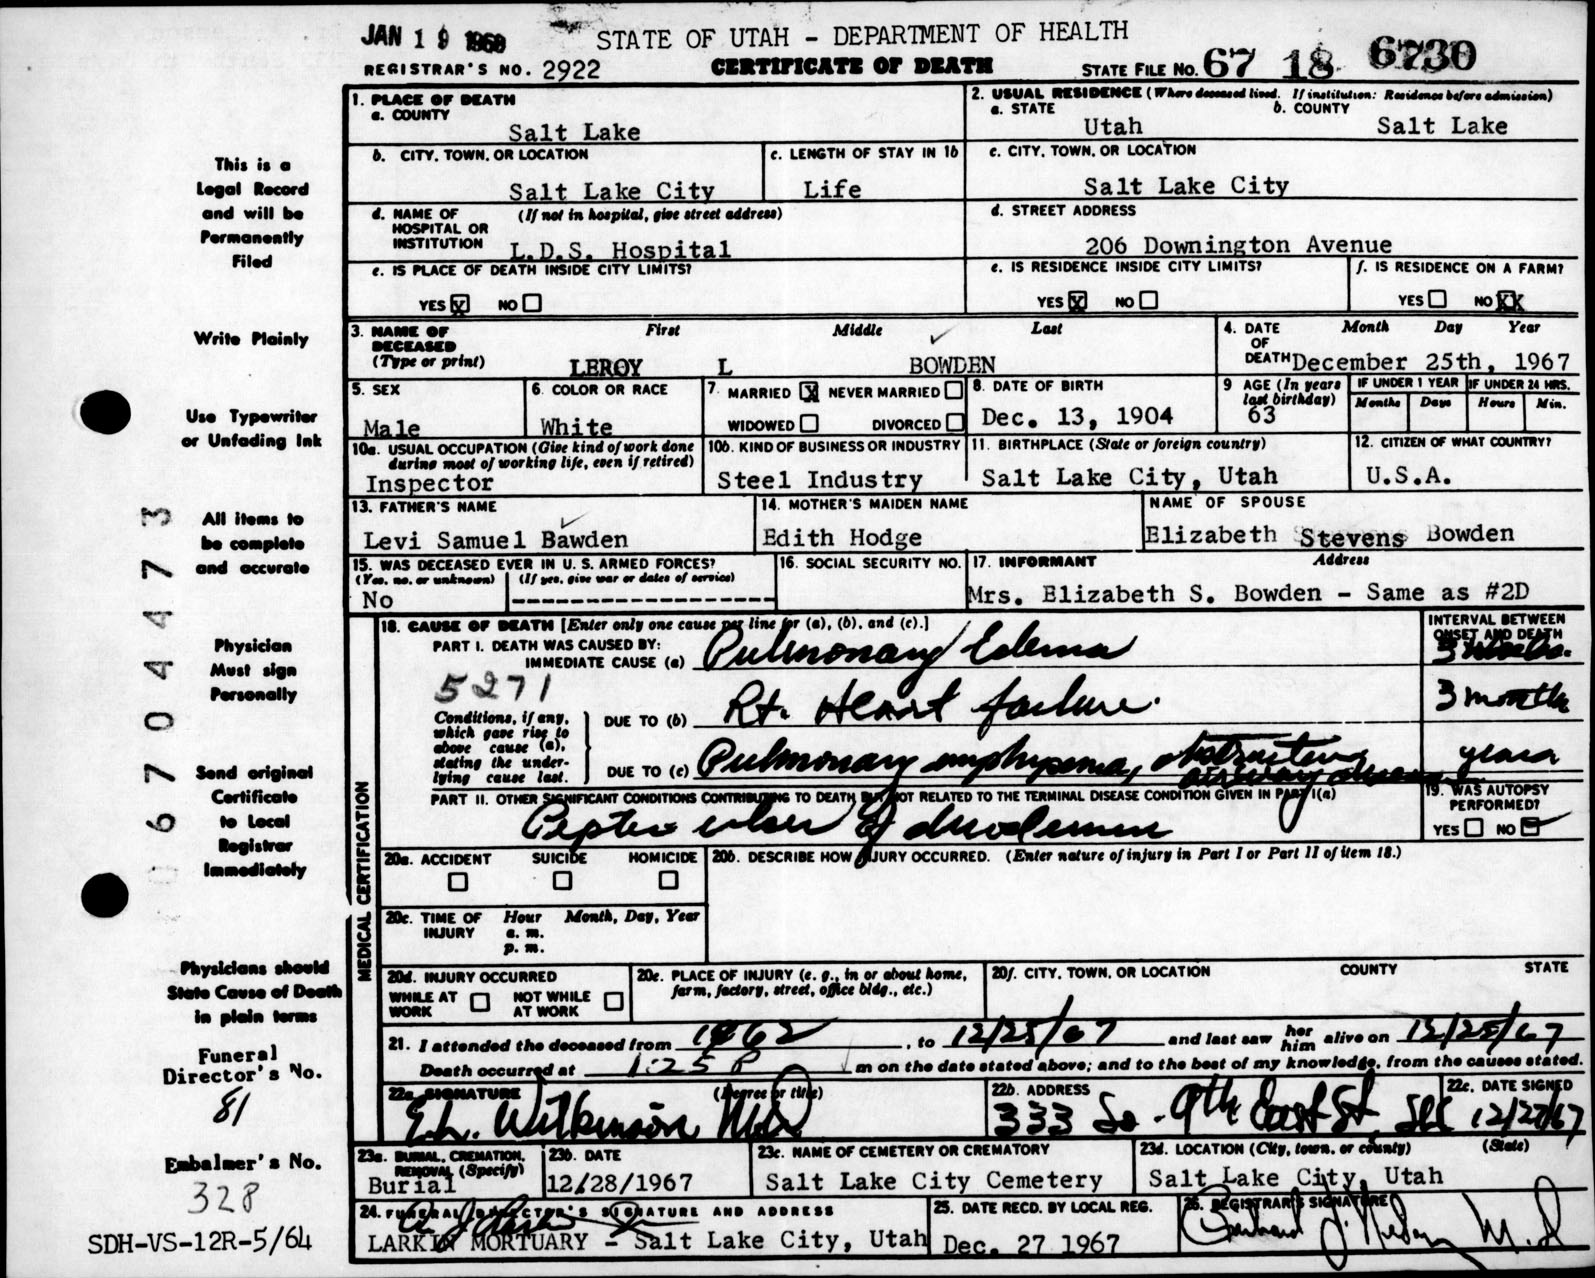 JAN 19 1968
STATE OF UTAH - DEPARTMENT OF HEALTH
REGISTRAR'S NO. 2922
CERTIFICATE OF DEATH
STATE FILE NO. 67 18 6730
1. PLACE OF DEATH
a. COUNTY
Salt Lake
2. USUAL RESIDENCE (Where deceased lived. If institution: Residence before admission)
a. STATE
Utah
b. COUNTY
Salt Lake
b. CITY, TOWN, OR LOCATION
Salt Lake City
c. LENGTH OF STAY IN 1b
Life
c. CITY, TOWN, OR LOCATION
Salt Lake City
d. NAME OF HOSPITAL OR INSTITUTION
(If not in hospital, give street address)
L.D.S. Hospital
d. STREET ADDRESS
206 Downington Avenue
e. IS PLACE OF DEATH INSIDE CITY LIMITS?
YES X NO
e. IS RESIDENCE INSIDE CITY LIMITS?
YES X NO
f. IS RESIDENCE ON A FARM?
YES NO XX
3. NAME OF DECEASED (Type or print)
First Middle Last
LEROY L BOWDEN
4. DATE OF DEATH
Month Day Year
December 25th, 1967
5. SEX
Male
6. COLOR OR RACE
White
7. MARRIED X NEVER MARRIED
WIDOWED DIVORCED
8. DATE OF BIRTH
Dec. 13, 1904
9 AGE (In years last birthday)
63
IF UNDER 1 YEAR
Months Days
IF UNDER 24 HRS.
Hours Min.
10a. USUAL OCCUPATION (Give kind of work done during most of working life, even if retired)
Inspector
10b. KIND OF BUSINESS OR INDUSTRY
Steel Industry
11. BIRTHPLACE (State or foreign country)
Salt Lake City, Utah
12. CITIZEN OF WHAT COUNTRY?
U.S.A.
13. FATHER'S NAME
Levi Samuel Bawden
14. MOTHER'S MAIDEN NAME
Edith Hodge
NAME OF SPOUSE
Elizabeth Stevens Bowden
15. WAS DECEASED EVER IN U. S. ARMED FORCES?
(Yes, no, or unknown) (If yes, give war or dates of service)
No --------------------
16. SOCIAL SECURITY NO.
17. INFORMANT Address
Mrs. Elizabeth S. Bowden - Same as #2D
MEDICAL CERTIFICATION
18. CAUSE OF DEATH [Enter only one cause per line for (a), (b), and (c).]
INTERVAL BETWEEN ONSET AND DEATH
PART I. DEATH WAS CAUSED BY:
IMMEDIATE CAUSE (a) Pulmonary Edema
5271
Conditions, if any, which gave rise to above cause (a), stating the underlying cause last.
DUE TO (b) Rt. Heart failure. 3 months
DUE TO (c) Pulmonary emphysema, obstructive airway disease years
PART II. OTHER SIGNIFICANT CONDITIONS CONTRIBUTING TO DEATH BUT NOT RELATED TO THE TERMINAL DISEASE CONDITION GIVEN IN PART I(a)
Peptic ulcer of duodenum
19. WAS AUTOPSY PERFORMED?
YES NO
20a. ACCIDENT SUICIDE HOMICIDE
20b. DESCRIBE HOW INJURY OCCURRED. (Enter nature of injury in Part I or Part II of item 18.)
20c. TIME OF INJURY
Hour Month, Day, Year
a. m.
p. m.
20d. INJURY OCCURRED
WHILE AT WORK NOT WHILE AT WORK
20e. PLACE OF INJURY (e. g., in or about home, farm, factory, street, office bldg., etc.)
20f. CITY, TOWN, OR LOCATION COUNTY STATE
21. I attended the deceased from 1962, to 12/25/67 and last saw her him alive on 12/25/67
Death occurred at 1:25 P m on the date stated above; and to the best of my knowledge, from the causes stated.
22a. SIGNATURE (Degree or title)
E.L. Wilkinson M.D.
22b. ADDRESS
333 So - 9th East St. SLC
22c. DATE SIGNED
12/27/67
23a. BURIAL, CREMATION, REMOVAL (Specify)
Burial
23b. DATE
12/28/1967
23c. NAME OF CEMETERY OR CREMATORY
Salt Lake City Cemetery
23d. LOCATION (City, town, or county) (State)
Salt Lake City, Utah
24. FUNERAL DIRECTOR'S SIGNATURE AND ADDRESS
LARKIN MORTUARY - Salt Lake City, Utah
25. DATE RECD. BY LOCAL REG.
Dec. 27 1967
26. REGISTRAR'S SIGNATURE
This is a
Legal Record
and will be
Permanently
Filed
Write Plainly
Use Typewriter
or Unfading Ink
All items to
be complete
and accurate
Physician
Must sign
Personally
Send original
Certificate
to Local
Registrar
Immediately
Physicians should
State Cause of Death
in plain terms
Funeral
Director's No.
81
Embalmer's No.
328
SDH-VS-12R-5/64
06704473